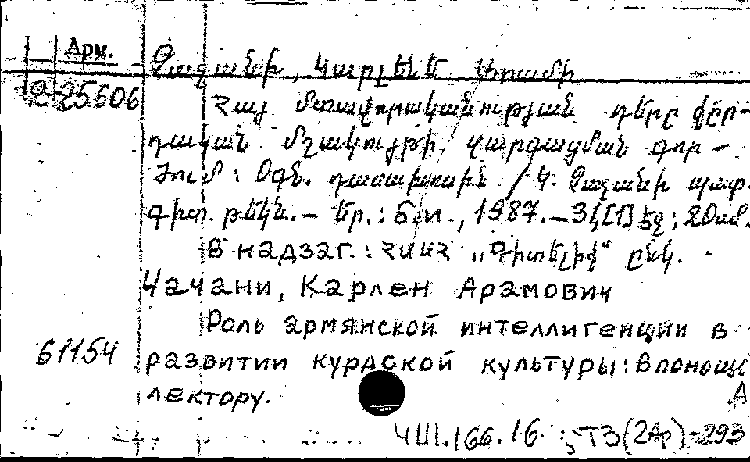 Арм.
Չաչանի, Կարլեն Արամի
2-25606 Հայ մտավորականության դերը քըր-
դական մշակույթի զարգացման գոր-
ծում: Օգն. դասախոսին / Կ. Չաչանի պատ.
գիտ. թեկն. - Եր.: Բ. ի., 1987. - 31,[1] էջ; 20սմ.
В надзаг.: ՀՍՍՀ „Գիտելիք" ընկ.
Чачани, Карлен Арамович
Роль армянской интеллигенции в
61154 развитии курдской культуры: В помощь
лектору.
Ч III.166.16. ТЗ(2Ар)-293